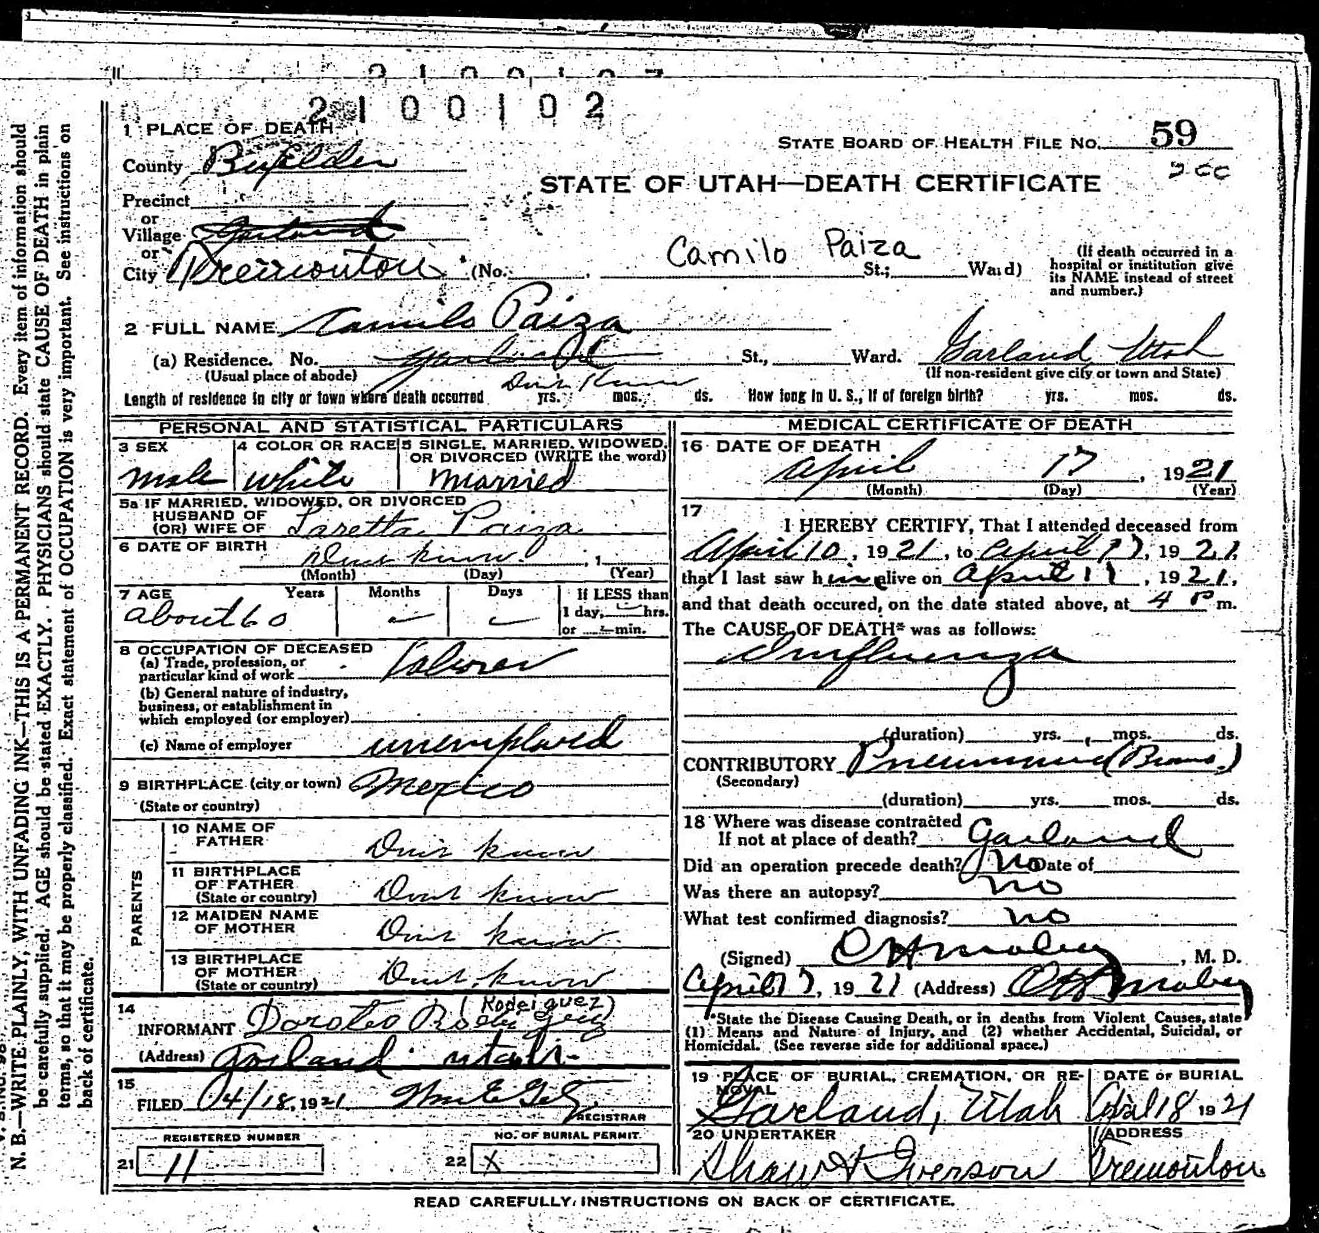 2100102
1 PLACE OF DEATH
STATE BOARD OF HEALTH FILE NO. 59
County Boxelder
200
STATE OF UTAH—DEATH CERTIFICATE
Precinct
or
Village Garland
or
City Tremonton (No. Camilo Paiza St.; Ward)
(If death occurred in a hospital or institution give its NAME instead of street and number.)
2 FULL NAME Camilo Paiza
(a) Residence. No. St., Ward. Garland Utah
(Usual place of abode) (If non-resident give city or town and State)
Length of residence in city or town where death occurred Don't Know yrs. mos. ds. How long in U. S., if of foreign birth? yrs. mos. ds.
PERSONAL AND STATISTICAL PARTICULARS
3 SEX
Male
4 COLOR OR RACE
White
5 SINGLE, MARRIED, WIDOWED, OR DIVORCED (WRITE the word)
Married
5a IF MARRIED, WIDOWED, OR DIVORCED
HUSBAND OF
(OR) WIFE OF Laretta Paiza
6 DATE OF BIRTH Dont know, 1
(Month) (Day) (Year)
7 AGE Years Months Days If LESS than
about 60 1 day, hrs.
or min.
8 OCCUPATION OF DECEASED
(a) Trade, profession, or
particular kind of work Laborer
(b) General nature of industry,
business, or establishment in
which employed (or employer)
(c) Name of employer unemployed
9 BIRTHPLACE (city or town) Mexico
(State or country)
PARENTS
10 NAME OF
FATHER Dont know
11 BIRTHPLACE
OF FATHER
(State or country) Dont know
12 MAIDEN NAME
OF MOTHER Dont know
13 BIRTHPLACE
OF MOTHER
(State or country) Dont know
14 (Rodeiguez)
INFORMANT Doroteo
(Address) Garland Utah
15
FILED 04/18, 1921
REGISTRAR
REGISTERED NUMBER
21 11
NO. OF BURIAL PERMIT
22 X
MEDICAL CERTIFICATE OF DEATH
16 DATE OF DEATH
April 17, 1921
(Month) (Day) (Year)
17
I HEREBY CERTIFY, That I attended deceased from
April 10, 1921, to April 17, 1921,
that I last saw him alive on April 17, 1921,
and that death occured, on the date stated above, at 4 P m.
The CAUSE OF DEATH* was as follows:
Influenza
(duration) yrs. mos. ds.
CONTRIBUTORY Pneumonia (Bronc.)
(Secondary)
(duration) yrs. mos. ds.
18 Where was disease contracted
If not at place of death? Garland
Did an operation precede death? No Date of
Was there an autopsy? no
What test confirmed diagnosis? no
(Signed) O H Mabey, M. D.
April 17, 1921 (Address) O H Mabey
*State the Disease Causing Death, or in deaths from Violent Causes, state
(1) Means and Nature of Injury, and (2) whether Accidental, Suicidal, or
Homicidal. (See reverse side for additional space.)
19 PLACE OF BURIAL, CREMATION, OR REMOVAL
Garland, Utah
DATE OF BURIAL
April 18 1921
20 UNDERTAKER
Shaw & Iverson
ADDRESS
Tremonton
READ CAREFULLY INSTRUCTIONS ON BACK OF CERTIFICATE.
N. B.—WRITE PLAINLY, WITH UNFADING INK—THIS IS A PERMANENT RECORD. Every item of information should
be carefully supplied. AGE should be stated EXACTLY. PHYSICIANS should state CAUSE OF DEATH in plain
terms, so that it may be properly classified. Exact statement of OCCUPATION is very important. See instructions on
back of certificate.